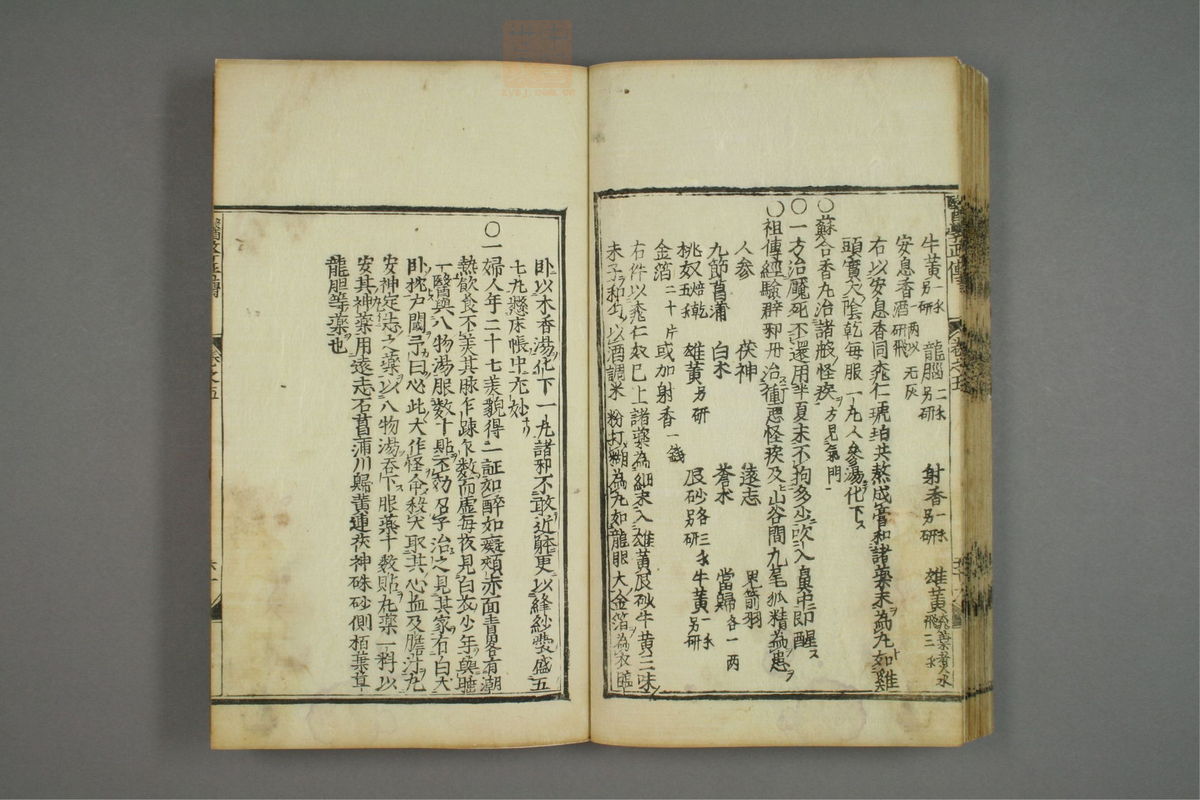 醫學正傳
卷之五
牛黃 另研一錢 龍腦 另研二錢 射香 另研一錢 雄黃 飛三錢
安息香 一兩以无灰酒研飛
右以安息香同桃仁琥珀共熬成膏和諧藥末為丸如雞
頭實大陰乾每服一丸人參湯化下
〇蘇合香丸治諸般怪疾 方見氣門
〇一方治魘死不還用半夏末不拘多少吹入鼻中即醒
〇祖傳經驗辟邪丹治衝惡怪疾及山谷間九尾狐精為患
人參 茯神 遠志 鬼箭羽
九節菖蒲 白朮 蒼朮 當歸 各一兩
桃奴 焙乾五錢 雄黃 另研 辰砂 各三錢另研 牛黃 另研一錢
金箔 二十片 或加射香一錢
右件以桃奴已上諸藥為細末入雄黃辰砂牛黃三味
末子和勻以酒調米粉打糊為丸如龍眼大金箔為衣臨
卧以木香湯化下一丸諸邪不敢近體更以絳紗囊盛五
七丸懸床帳中尤妙
〇一婦人年二十七美貌得一証如醉如癡頰赤面青畧有潮
熱飲食不美其脉乍踈乍數而虛每夜見白衣少年與睡
一醫與八物湯服數十貼不効召予治之見其家有白犬
卧枕戶閾予曰必此犬作怪命殺犬取其心血及膽汁丸
安神定志之藥以八物湯吞下服藥十數貼丸藥一料以
安其神藥用遠志石菖蒲川歸黃連茯神硃砂側栢葉草
龍胆等藥也
醫學正傳
卷之五